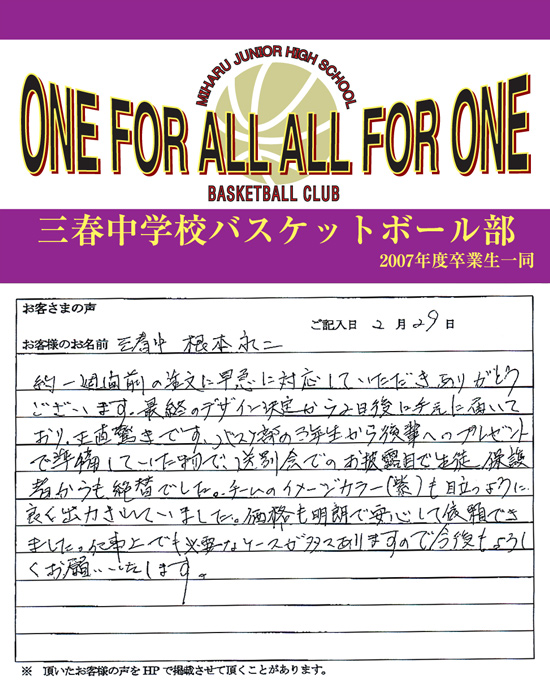 MIHARU JUNIOR HIGH SCHOOL
ONE FOR ALL ALL FOR ONE
BASKETBALL CLUB
三春中学校バスケットボール部
2007年度卒業生一同
お客さまの声
ご記入日 2 月 29 日
お客様のお名前 三春中 根本永二
約一週間前の注文に早急に対応していただきありがとう
ございます。最終のデザイン決定から2日後に手元に届いて
おり、正直驚きです。バスケ部の3年生から後輩へのプレゼント
で準備していた物で、送別会でのお披露目で生徒、保護
者からも絶賛でした。チームのイメージカラー(紫)も目立つように
良く出力されていました。価格も明朗で安心して依頼でき
ました。仕事上でも必要なケースが多々ありますので今後もよろし
くお願いいたします。
※ 頂いたお客様の声をHPで掲載させて頂くことがあります。